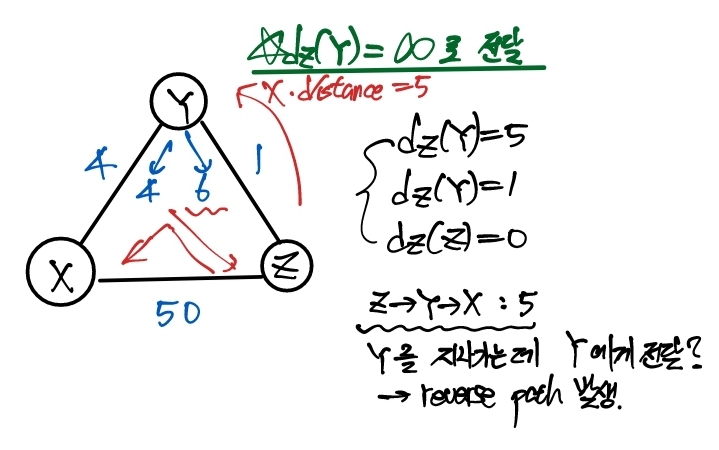 ☆dz(Y)=∞로 전달
X·distance=5
Y
4
1
4 6
dz(Y)=5
dz(Y)=1
dz(Z)=0
X
Z
50
Z→Y→X : 5
Y를 지나가는데 Y에게 전달?
→ reverse path 발생.